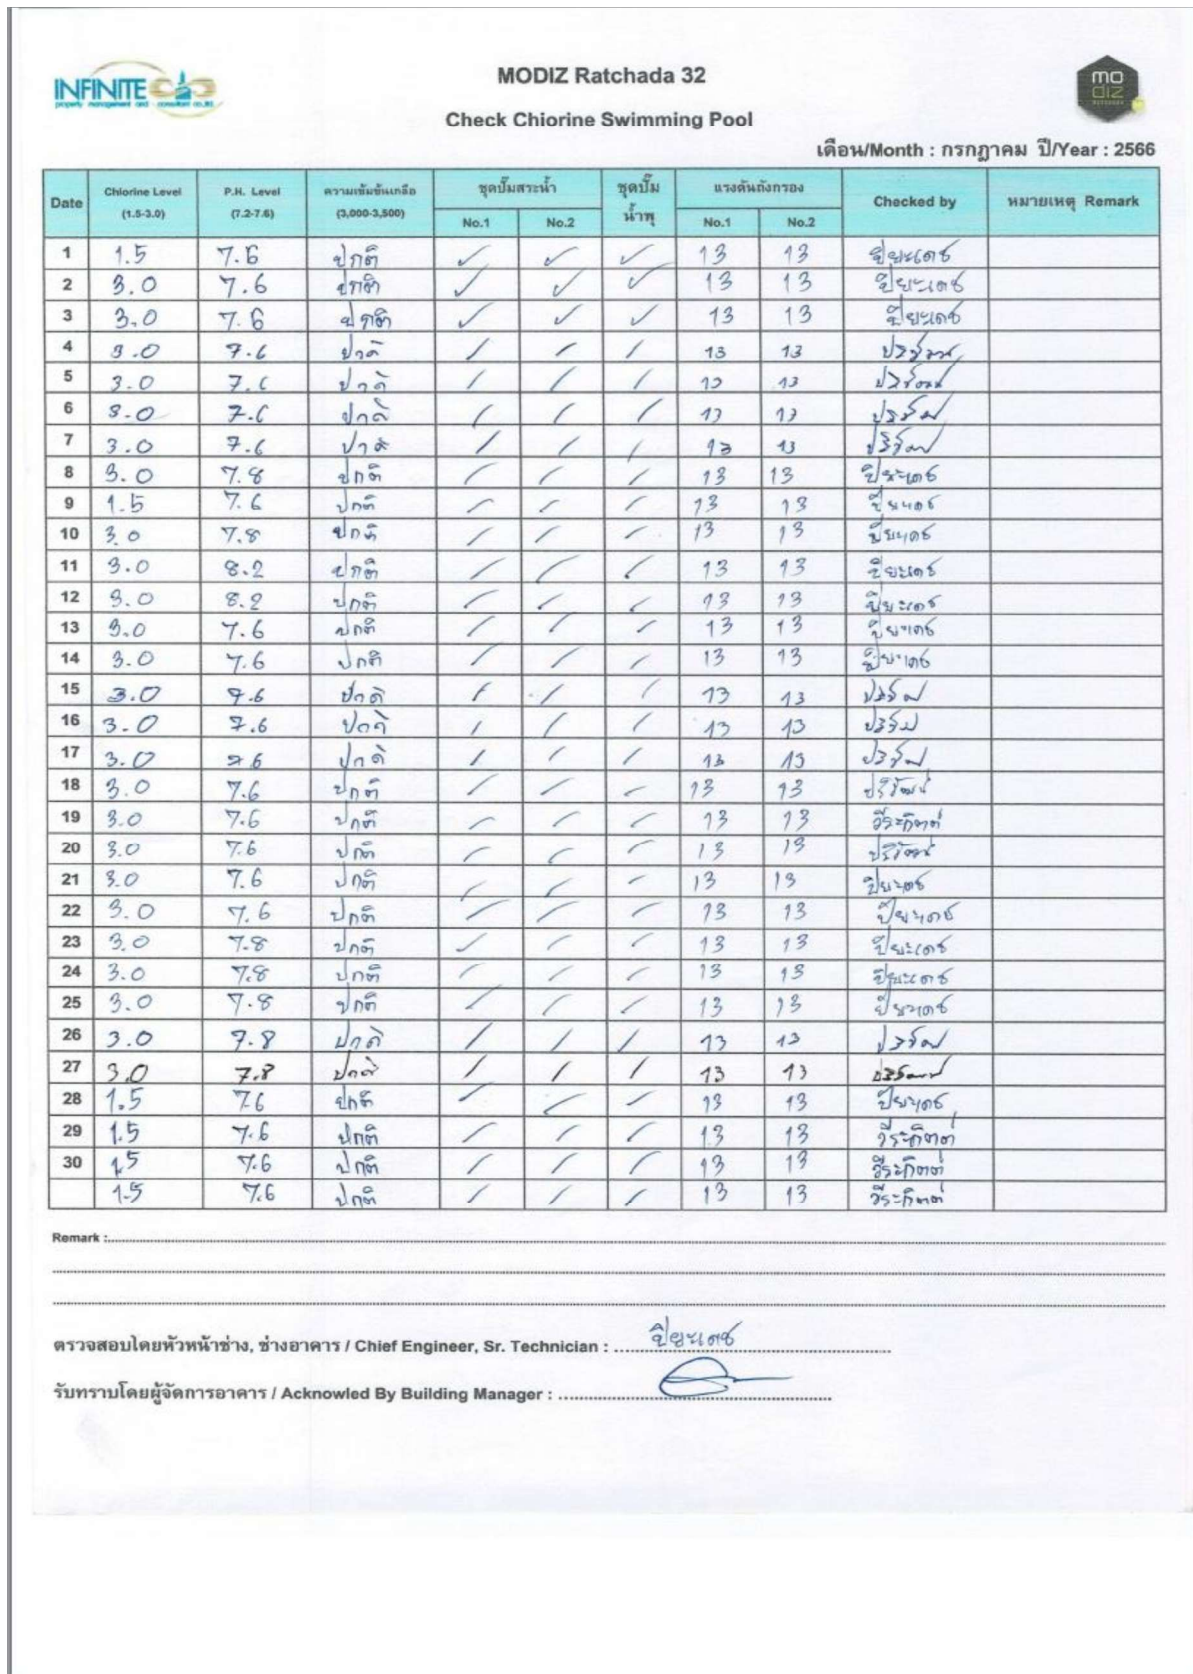 INFINITE
property management and consultant co.,ltd.
mo
diz
RATCHADA
MODIZ Ratchada 32
Check Chiorine Swimming Pool
เดือน/Month : กรกฎาคม ปี/Year : 2566
Date Chlorine Level (1.5-3.0) P.H. Level (7.2-7.6) ความเข้มข้นเกลือ (3,000-3,500) ชุดปั๊มสระน้ำ ชุดปั๊มน้ำพุ แรงดันถังกรอง Checked by หมายเหตุ Remark
No.1 No.2 No.1 No.2
1 1.5 7.6 ปกติ ✓ ✓ ✓ 13 13 ปิยะเดช
2 3.0 7.6 ปกติ ✓ ✓ ✓ 13 13 ปิยะเดช
3 3.0 7.6 ปกติ ✓ ✓ ✓ 13 13 ปิยะเดช
4 3.0 7.6 ปกติ / / / 13 13
5 3.0 7.6 ปกติ / / / 13 13
6 3.0 7.6 ปกติ / / / 13 13
7 3.0 7.6 ปกติ / / / 13 13
8 3.0 7.8 ปกติ / / / 13 13 ปิยะเดช
9 1.5 7.6 ปกติ / / / 13 13 ปิยะเดช
10 3.0 7.8 ปกติ / / / 13 13 ปิยะเดช
11 3.0 8.2 ปกติ / / / 13 13 ปิยะเดช
12 3.0 8.2 ปกติ / / / 13 13 ปิยะเดช
13 3.0 7.6 ปกติ / / / 13 13 ปิยะเดช
14 3.0 7.6 ปกติ / / / 13 13 ปิยะเดช
15 3.0 7.6 ปกติ / / / 13 13
16 3.0 7.6 ปกติ / / / 13 13
17 3.0 7.6 ปกติ / / / 13 13
18 3.0 7.6 ปกติ / / / 13 13
19 3.0 7.6 ปกติ / / / 13 13 วีระกิตต์
20 3.0 7.6 ปกติ / / / 13 13
21 3.0 7.6 ปกติ / / / 13 13 ปิยะเดช
22 3.0 7.6 ปกติ / / / 13 13 ปิยะเดช
23 3.0 7.8 ปกติ / / / 13 13 ปิยะเดช
24 3.0 7.8 ปกติ / / / 13 13 ปิยะเดช
25 3.0 7.8 ปกติ / / / 13 13 ปิยะเดช
26 3.0 7.8 ปกติ / / / 13 13
27 3.0 7.8 ปกติ / / / 13 13
28 1.5 7.6 ปกติ / / / 13 13 ปิยะเดช
29 1.5 7.6 ปกติ / / / 13 13 วีระกิตต์
30 1.5 7.6 ปกติ / / / 13 13 วีระกิตต์
1.5 7.6 ปกติ / / / 13 13 วีระกิตต์
Remark :
ตรวจสอบโดยหัวหน้าช่าง, ช่างอาคาร / Chief Engineer, Sr. Technician : ปิยะเดช
รับทราบโดยผู้จัดการอาคาร / Acknowled By Building Manager :